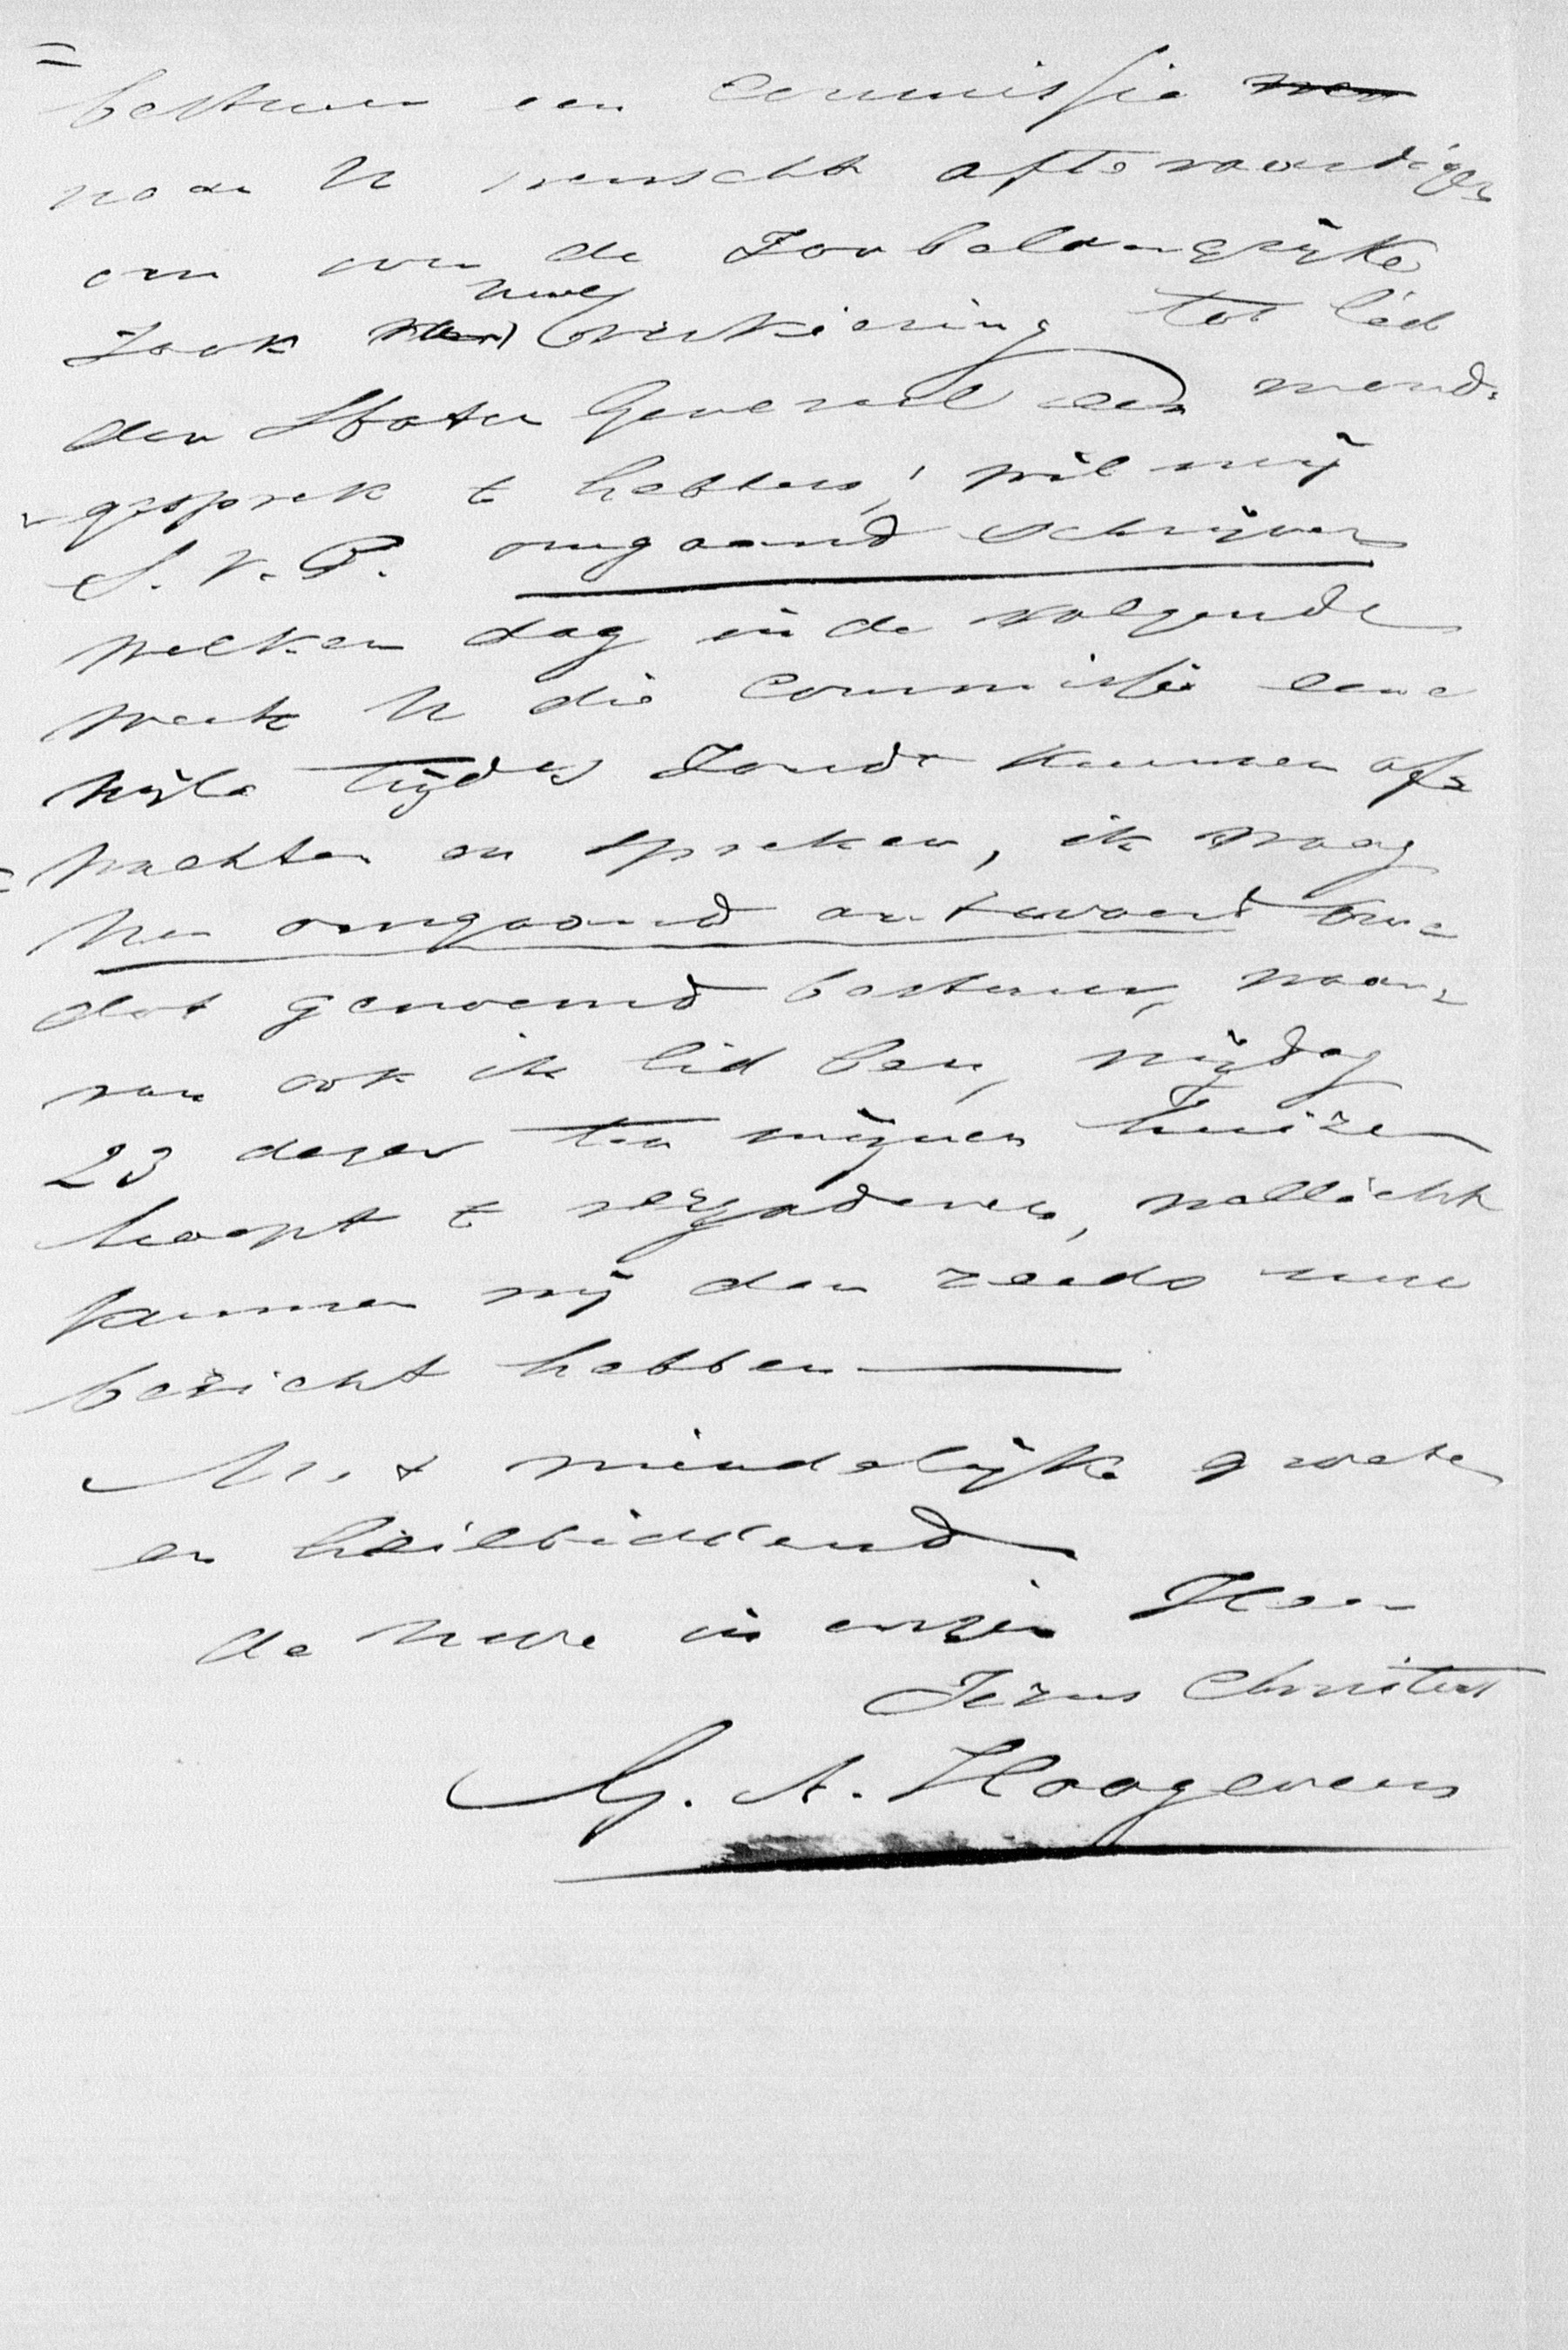 =
bestuur een Commissie
naar U wenscht afte vaardigen
om over de zoo belangrijke
zaak uwe verkiezing tot lid
der Staten Generaal een mond-
gesprek te hebben; wil mij
S. V. P. omgaand schrijven
welken dag in de volgende
week U die Commissie eene
wijle tijds zoudt kunnen af=
wachten en spreken, ik vraag
Uw omgaand antwoord om=
dat genoemd bestuur, waar=
van ook ik lid ben, vrijdag
23 dezer ten mijnen huize
hoopt te vergaderen, wellicht
kunnen wij dan reeds uw
bericht hebben
Met vriendelijke groeten
en heilbiddend
de uwe in onzen Heer
Jezus Christus
G. A. Hoogeveen